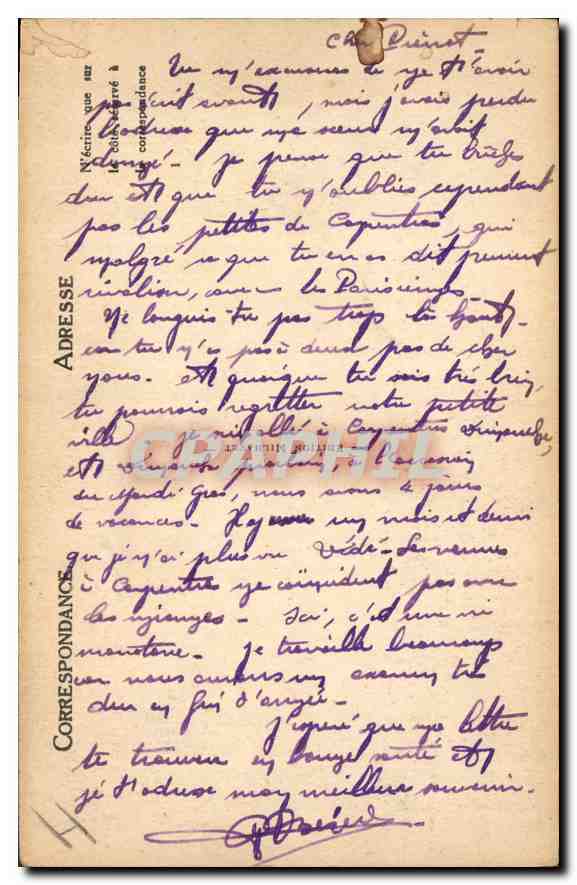 Cher Pierrot
Tu m'excuseras de ne t'avoir
pas écrit avant, mais j'avais perdu
l'adresse que ma sœur m'avait
donné. Je pense que tu
dur et que tu n'oublies cependant
pas les petites de Carpentras, qui
malgré ce que tu en as dit peuvent
rivaliser avec les Parisiennes.
Ne languis-tu pas trop là haut
car tu n'es pas à deux pas de chez
nous. Et quoique tu sois très bien,
tu pourrais regretter notre petite
ville. Je suis allé à Carpentras dimanche,
et dimanche prochain à l'occasion
du Mardi Gras, nous avons 4 jours
de vacances. Il y a un mois et demi
que je n'ai plus vu Dédé. Ses venues
à Carpentras ne coïncident pas avec
les miennes. Ici, c'est une vie
monotone. Je travaille beaucoup
car nous aurons un examen très
dur en fin d'année.
J'espère que ma lettre
te trouvera en bonne santé et
je t'adresse mon meilleur souvenir.
N'écrire que sur
le côté réservé à
la correspondance
ADRESSE
CORRESPONDANCE
EDITION
CPAPHIL